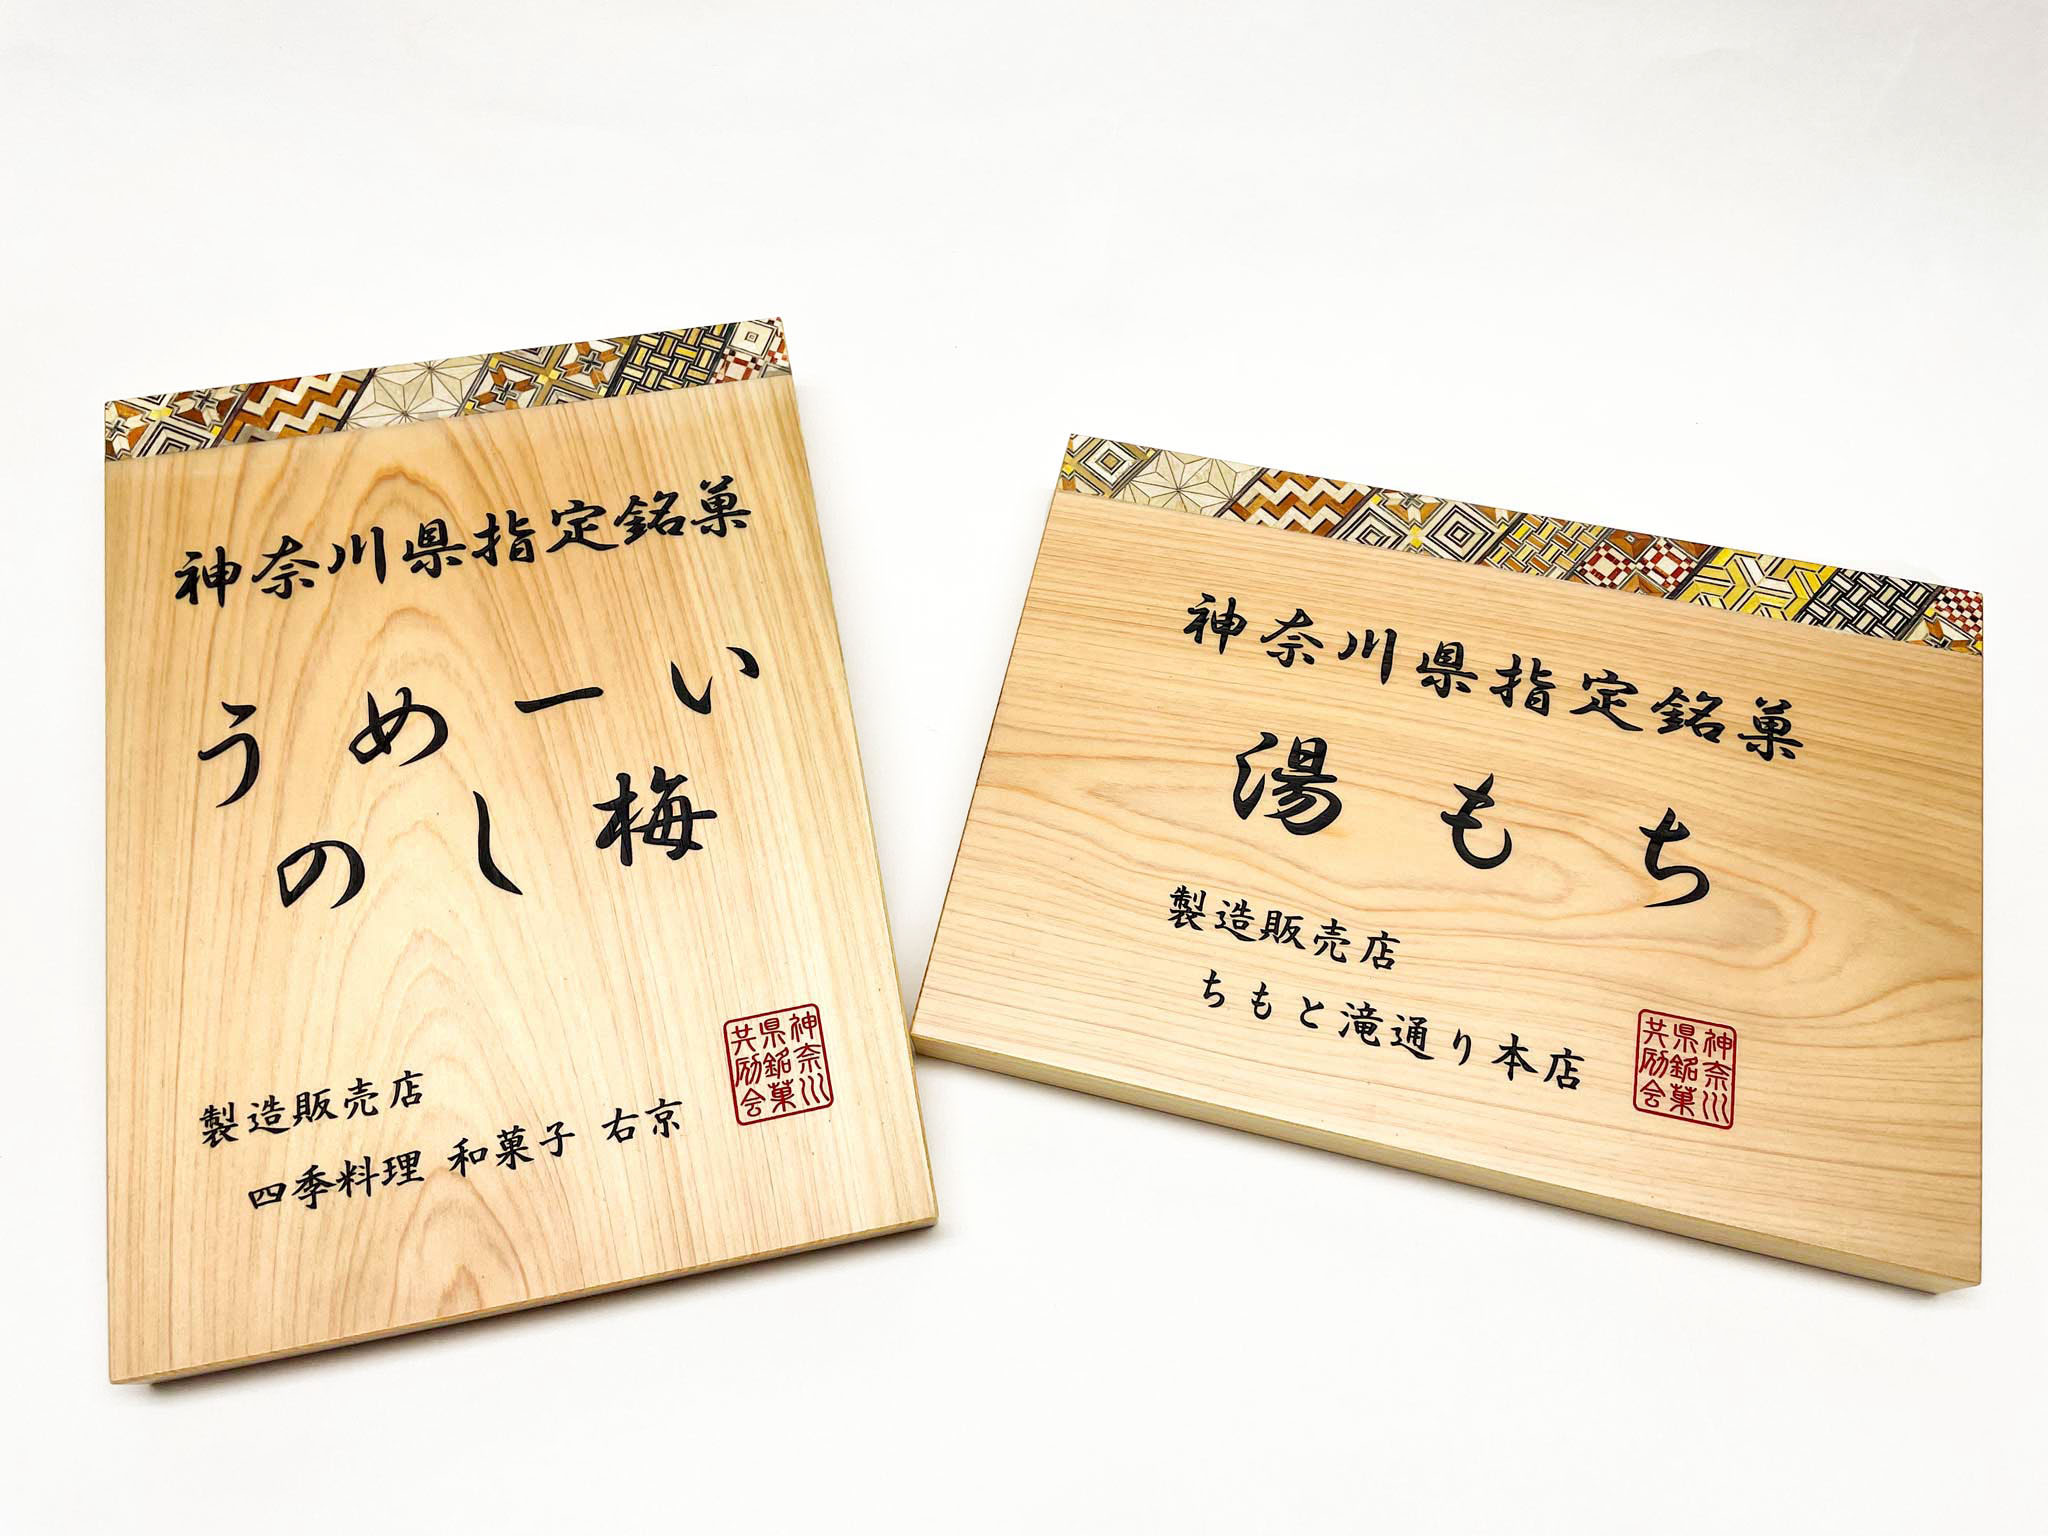 神奈川県指定銘菓
うめーい
のし梅
製造販売店
四季料理 和菓子 右京
神奈川
県銘菓
共励会
神奈川県指定銘菓
湯もち
製造販売店
ちもと滝通り本店
神奈川
県銘菓
共励会